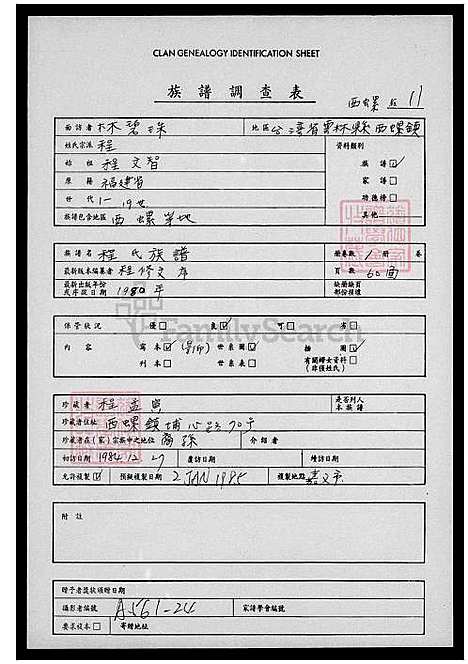 CLAN GENEALOGY IDENTIFICATION SHEET
族譜調查表
西螺 11
面訪者 林碧珠 地區 台灣省雲林縣西螺鎮
姓氏宗派 程 資料類別
始祖 程文智 族譜☑
原籍 福建省 家譜☐
世代 1-19世 功德榜☐
族譜包含地區 西螺等地 其他
族譜名 程氏族譜 冊卷數 1 冊 卷
最新版本編纂者 程修文 頁數 60面
最新出版年份 缺冊缺頁
或序跋日期 1980年 部份損壞
保管狀況 優☐ 良☑ 可☐ 劣☐
內容 寫本☑ (影印) 世系圖☑ 插圖☑
刊本☐ 世系表☐ 有關婦女資料☐
(非僅姓氏)
FamilySearch
珍藏者 程孟 是否列入
本族譜
珍藏者住址 西螺鎮埔心路70號
珍藏者在(家)宗族中之地位 裔孫 介紹者
初訪日期 1984.12.27 覆訪日期 續訪日期
允許複製☑ 預擬複製日期 2 JAN 1985 複製地點 嘉義市
附註
贈予者獎狀頒贈日期
攝影者編號 A561-24 家譜學會編號
要求複本☐ 寄贈地址